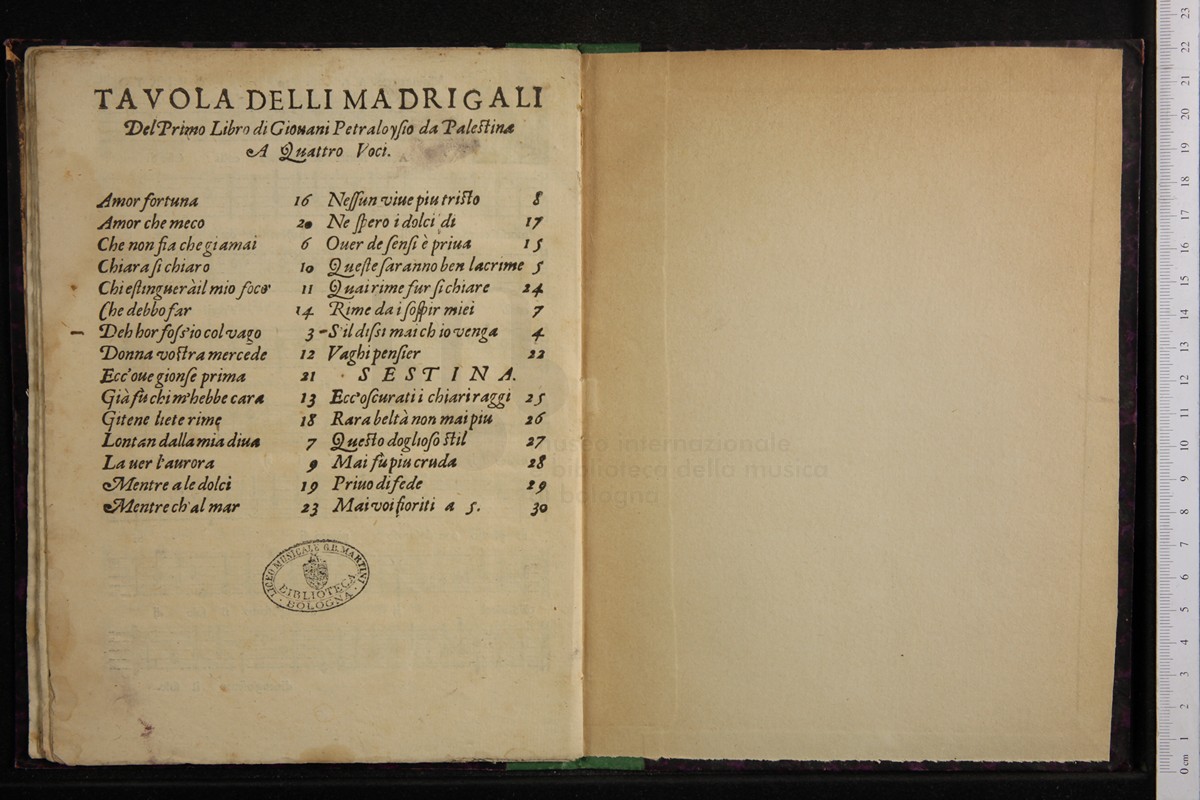 TAVOLA DELLI MADRIGALI
Del Primo Libro di Giouani Petraloysio da Palestina
A Quattro Voci.
Amor fortuna 16
Amor che meco 20
Che non fia che giamai 6
Chiara si chiaro 10
Chi estinguerà il mio foco 11
Che debbo far 14
Deh hor foss'io col vago 3
Donna vostra mercede 12
Ecc'oue gionse prima 21
Già fù chi m'hebbe cara 13
Gitene liete rime 18
Lontan dalla mia diua 7
La uer l'aurora 9
Mentre a le dolci 19
Mentre ch'al mar 23
Nessun viue piu tristo 8
Ne spero i dolci di 17
Ouer de sensi è priua 15
Queste saranno ben lacrime 5
Quai rime fur si chiare 24
Rime da i sospir miei 7
S'il dissi mai ch io venga 4
Vaghi pensier 22
SESTINA.
Ecc'oscurati i chiari raggi 25
Rara beltà non mai piu 26
Questo doglioso stil 27
Mai fù piu cruda 28
Priuo di fede 29
Mai voi fioriti a 5. 30
LICEO MUSICALE G.B. MARTINI
BIBLIOTECA
BOLOGNA
museo internazionale
biblioteca della musica
di bologna
0 cm 1 2 3 4 5 6 7 8 9 10 11 12 13 14 15 16 17 18 19 20 21 22 23